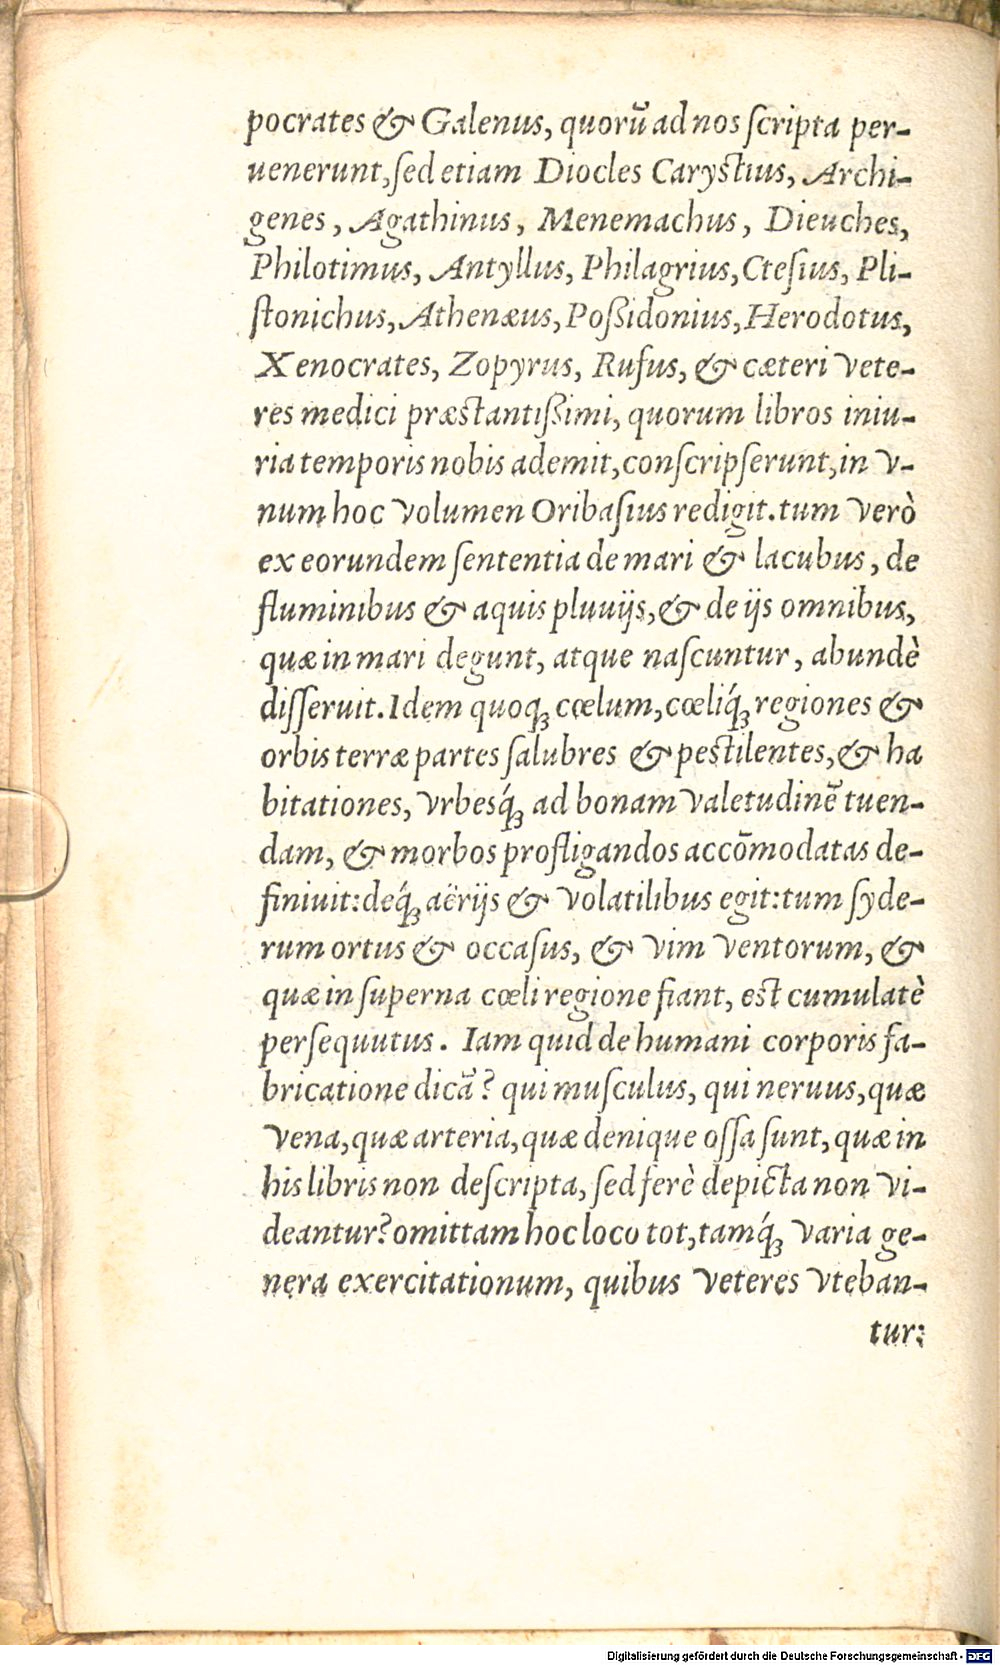 pocrates & Galenus, quorū ad nos ſcripta per-
uenerunt, ſed etiam Diocles Caryſtius, Archi-
genes, Agathinus, Menemachus, Dieuches,
Philotimus, Antyllus, Philagrius, Cteſius, Pli-
ſtonichus, Athenæus, Poßidonius, Herodotus,
Xenocrates, Zopyrus, Rufus, & cæteri vete-
res medici præſtantißimi, quorum libros iniu-
ria temporis nobis ademit, conſcripſerunt, in v-
num hoc volumen Oribaſius redigit. tum verò
ex eorundem ſententia de mari & lacubus, de
fluminibus & aquis pluuijs, & de ijs omnibus,
quæ in mari degunt, atque naſcuntur, abundè
diſſeruit. Idem quoqꝫ cœlum, cœliq́ꝫ regiones &
orbis terræ partes ſalubres & peſtilentes, & ha
bitationes, vrbesq́ꝫ ad bonam valetudinē tuen-
dam, & morbos profligandos accōmodatas de-
finiuit: deq́ꝫ aërijs & volatilibus egit: tum ſyde-
rum ortus & occaſus, & vim ventorum, &
quæ in ſuperna cœli regione fiant, eſt cumulatè
perſequutus. Iam quid de humani corporis fa-
bricatione dicā? qui muſculus, qui neruus, quæ
vena, quæ arteria, quæ denique oſſa ſunt, quæ in
his libris non deſcripta, ſed ferè depicta non vi-
deantur? omittam hoc loco tot, tamq́ꝫ varia ge-
nera exercitationum, quibus veteres vteban-
tur:
Digitalisierung gefördert durch die Deutsche Forschungsgemeinschaft - DFG